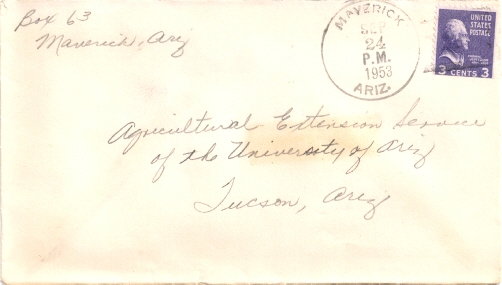 Box 63
Maverick, Ariz
MAVERICK
SEP
24
P.M.
1953
ARIZ.
UNITED
STATES
POSTAGE
3 CENTS 3
Agricultural Extension Service
of the University of Ariz
Tucson, Ariz